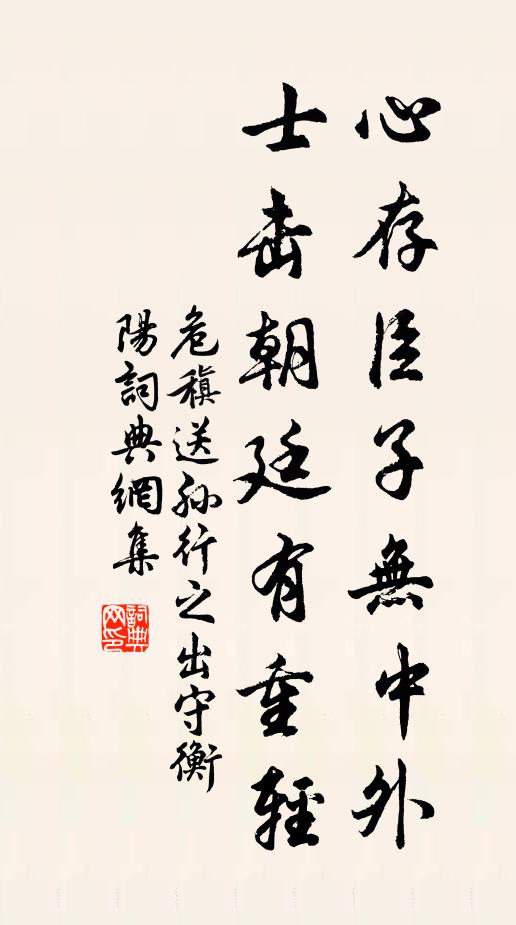 心存臣子無中外
士击朝廷有重輕
危稹送孙行之出守衡
陽詞典網集
詞典网印